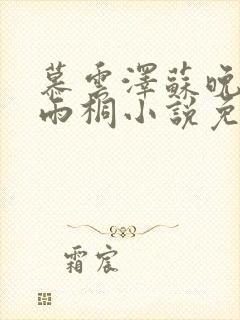 慕雲澤蘇晚
雨桐小說免
霜宸